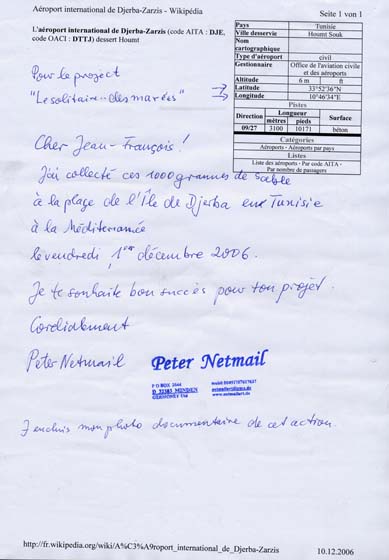 Aéroport international de Djerba-Zarzis - Wikipédia
Seite 1 von 1
L'aéroport international de Djerba-Zarzis (code AITA : DJE,
code OACI : DTTJ) dessert Houmt
Pays Tunisie
Ville desservie Houmt Souk
Nom
cartographique
Type d'aéroport civil
Gestionnaire Office de l'aviation civile
et des aéroports
Altitude 6 m ft
Latitude 33°52'36"N
Longitude 10°46'34"E
Pistes
Direction Longueur Surface
mètres pieds
09/27 3100 10171 béton
Catégories
Aéroports - Aéroports par pays
Listes
Liste des aéroports - Par code AITA -
Par nombre de passagers
Pour le project
"Le solitaire - des marées"
Cher Jean-François!
J'ai collecté ces 1000 grammes de Sable
à la plage de l'Île de Djerba en Tunisie
à la Méditerranée
le vendredi, 1er décembre 2006.
Je te souhaite bon succès pour ton projet.
Cordialement
Peter Netmail
Peter Netmail
P O BOX 2644
D 32383 MINDEN
GERMONEY
J'enclus mon photo documentaire de cet action.
http://fr.wikipedia.org/wiki/A%C3%A9roport_international_de_Djerba-Zarzis
10.12.2006